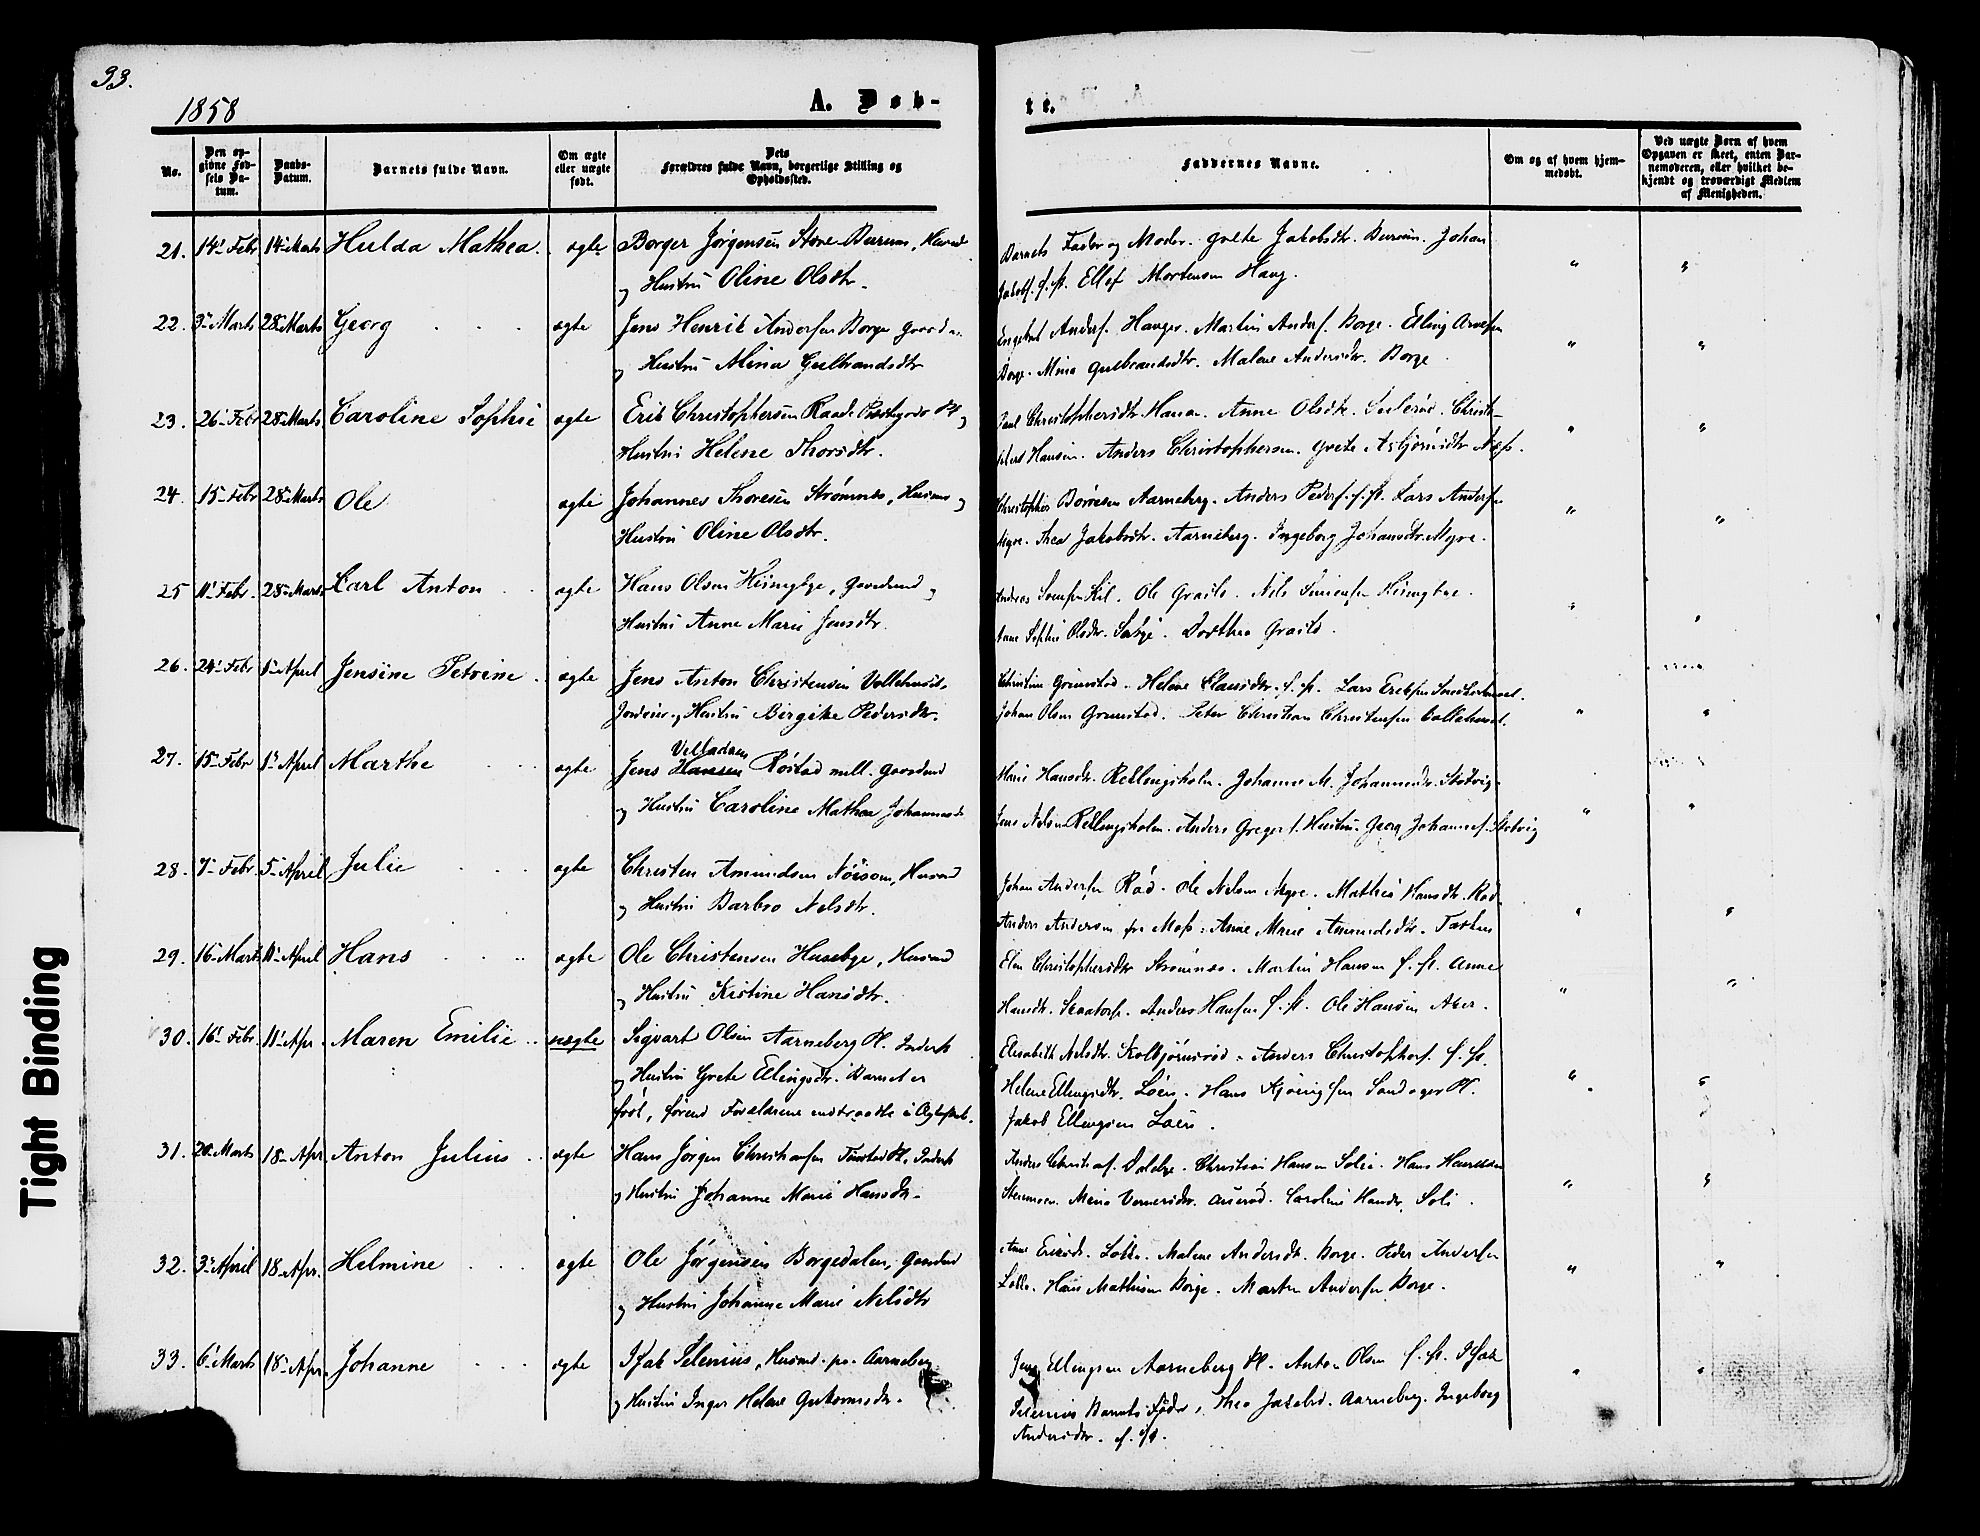 33.
1858
A. Døb-
te.
No.
Den opgivne Fødsels Datum.
Daabs-Datum.
Barnets fulde Navn.
Om ægte eller uægte født.
Dets Forældres fulde Navn, borgerlige Stilling og Opholdssted.
Faddernes Navne.
Om og af hvem hjemmedøbt.
Ved uægte Børn af hvem Opgaven er skeet, enten Barnemoderen, eller hvilket bekjendt og troværdigt Medlem af Menigheden.
21. 14 Febr 14 Marts Hulda Mathea. ægte Borger Jørgensen Store Burum, Husmd
og Hustru Oline Olsdtr.
Barnets Fader og Moder. Grete Jakobsdtr. Burum. Johan
Jakobs. s. st. Ellef Mortensen Haug.
22. 3 Marts 28 Marts Georg ægte Jens Henrik Andersen Borge
og Hustru Mina Gulbrandsdtr
Engebret Anders. Hauger. Martin Anders. Borge. Elling Arnesen
Borge. Mina Gulbrandsdtr. Malene Andersdtr. Borge.
23. 26 Febr 28 Marts Caroline Sophie ægte Erik Christophersen Raade Præstegrd Pl og
Hustru Helene Thorsdtr.
Christophersdtr Anne Olsdtr. Christo-
Hansen. Anders Christophersen. Grete Asbjørnsdtr
24. 15 Febr 28 Marts Ole ægte Johannes Thoresen Strømnes, Husmd og
Hustru Oline Olsdtr.
Christopher Børresen Aarneberg. Anders Peders. s. st. Lars Andersen
Myre. Thea Jakobsdtr. Aarneberg. Ingeborg Johansdtr. Myre.
25 11 Febr. 28 Marts Carl Anton ægte Hans Olsen Kiingbye, Gaardmd og
Hustru Anne Marie Jensdtr.
Andreas Svensen Kil. Ole Graits. Nils Simensen Kiingbye.
Anne Sophie Olsdtr. Dorthea Graits.
26. 24 Febr 1 April Jensine Petrine ægte Jens Anton Christensen
Jordeier og Hustru Birgithe Pedersdtr.
Christine Grimstad. Helene Clausdtr. s. st. Lars Eriksen
Johan Olsen Grimstad. Peter Christian Christensen
27. 15 Febr 1 April Marthe ægte Jens Hansen Røstad mell. Gaardmd
Velladsen
og Hustru Caroline Mathea Johannesd
Marie Hansdtr. Rellingsholm. Johanne M. Johannesdtr.
Jens Nelsen Rellingsholm. Anders Gregers. Hustru. Georg Johannes.
28. 7 Febr. 5 April Julie ægte Christen Amundsen Nöisom, Husmd
og Hustru Barbro Nelsdtr.
Johan Andersen Rød. Ole Nelsen Myre. Mathea Hansdtr. Rød
Anders Andersen fra Moss. Anne Marie Amundsdtr.
29. 16 Marts 11 April Hans ægte Ole Christensen Husebye, Husmd
og Hustru Kistine Hansdtr.
Elen Christophersdtr Strømnes. Martin Hansen s. st. Anne
Hansdtr. Anders Hansen s. st. Ole Hansen Aker.
30. 16 Febr. 11 Apr. Maren Emilie uægte Sigvart Olsen Aarneberg Pl. Inderst
og Hustru Grete Ellingsdtr. Barnet er
født, førend Forældrene indtraadte i Ægteskab.
Elisabeth Nelsdtr. Kolbjørnsrød. Anders Christophers. s. st.
Helene Ellingsdtr. Løen. Hans Sandager Pl.
Jakob Ellingsen Løen.
31. 20 Marts 18 Apr. Anton Julius ægte Hans Jørgen Christiansen Pl. Inderst
og Hustru Johanne Marie Hansdtr.
Christian Hansen Solie. Hans Henriksen
Mina Caroline Hansdtr. Soli.
32. 3 April 18 Apr. Helmine ægte Ole Jørgensen Borgedalen, Gaardmd
og Hustru Johanne Marie Nelsdtr
Anne Løkke. Malene Andersdtr. Borge. Peder Andersen
Løkke. Hans Mathisen Borge. Martin Andersen Borge.
33. 6 Marts 18 Apr. Johanne ægte Isak Selenius, Husmd. pr. Aarneberg
og Hustru Inger Helene Guttormsdtr.
Jens Ellingsen Aarneberg Pl. Anton Olsen s. st. Isak
Selenius Barnets Fader, Thea Jakobsd. Aarneberg. Ingeborg
Andersdtr. s. st.
Tight Binding